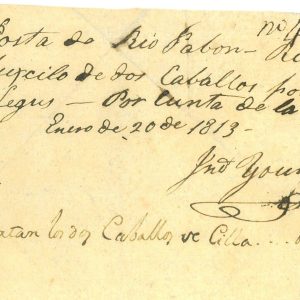 Posta de Rio Pabon — nº
auxcilo de dos Caballos po
legus — Por Cunta de la
Enero de 20 de 1813 —
Jnº Youn
los dos Caballos de Cilla ...